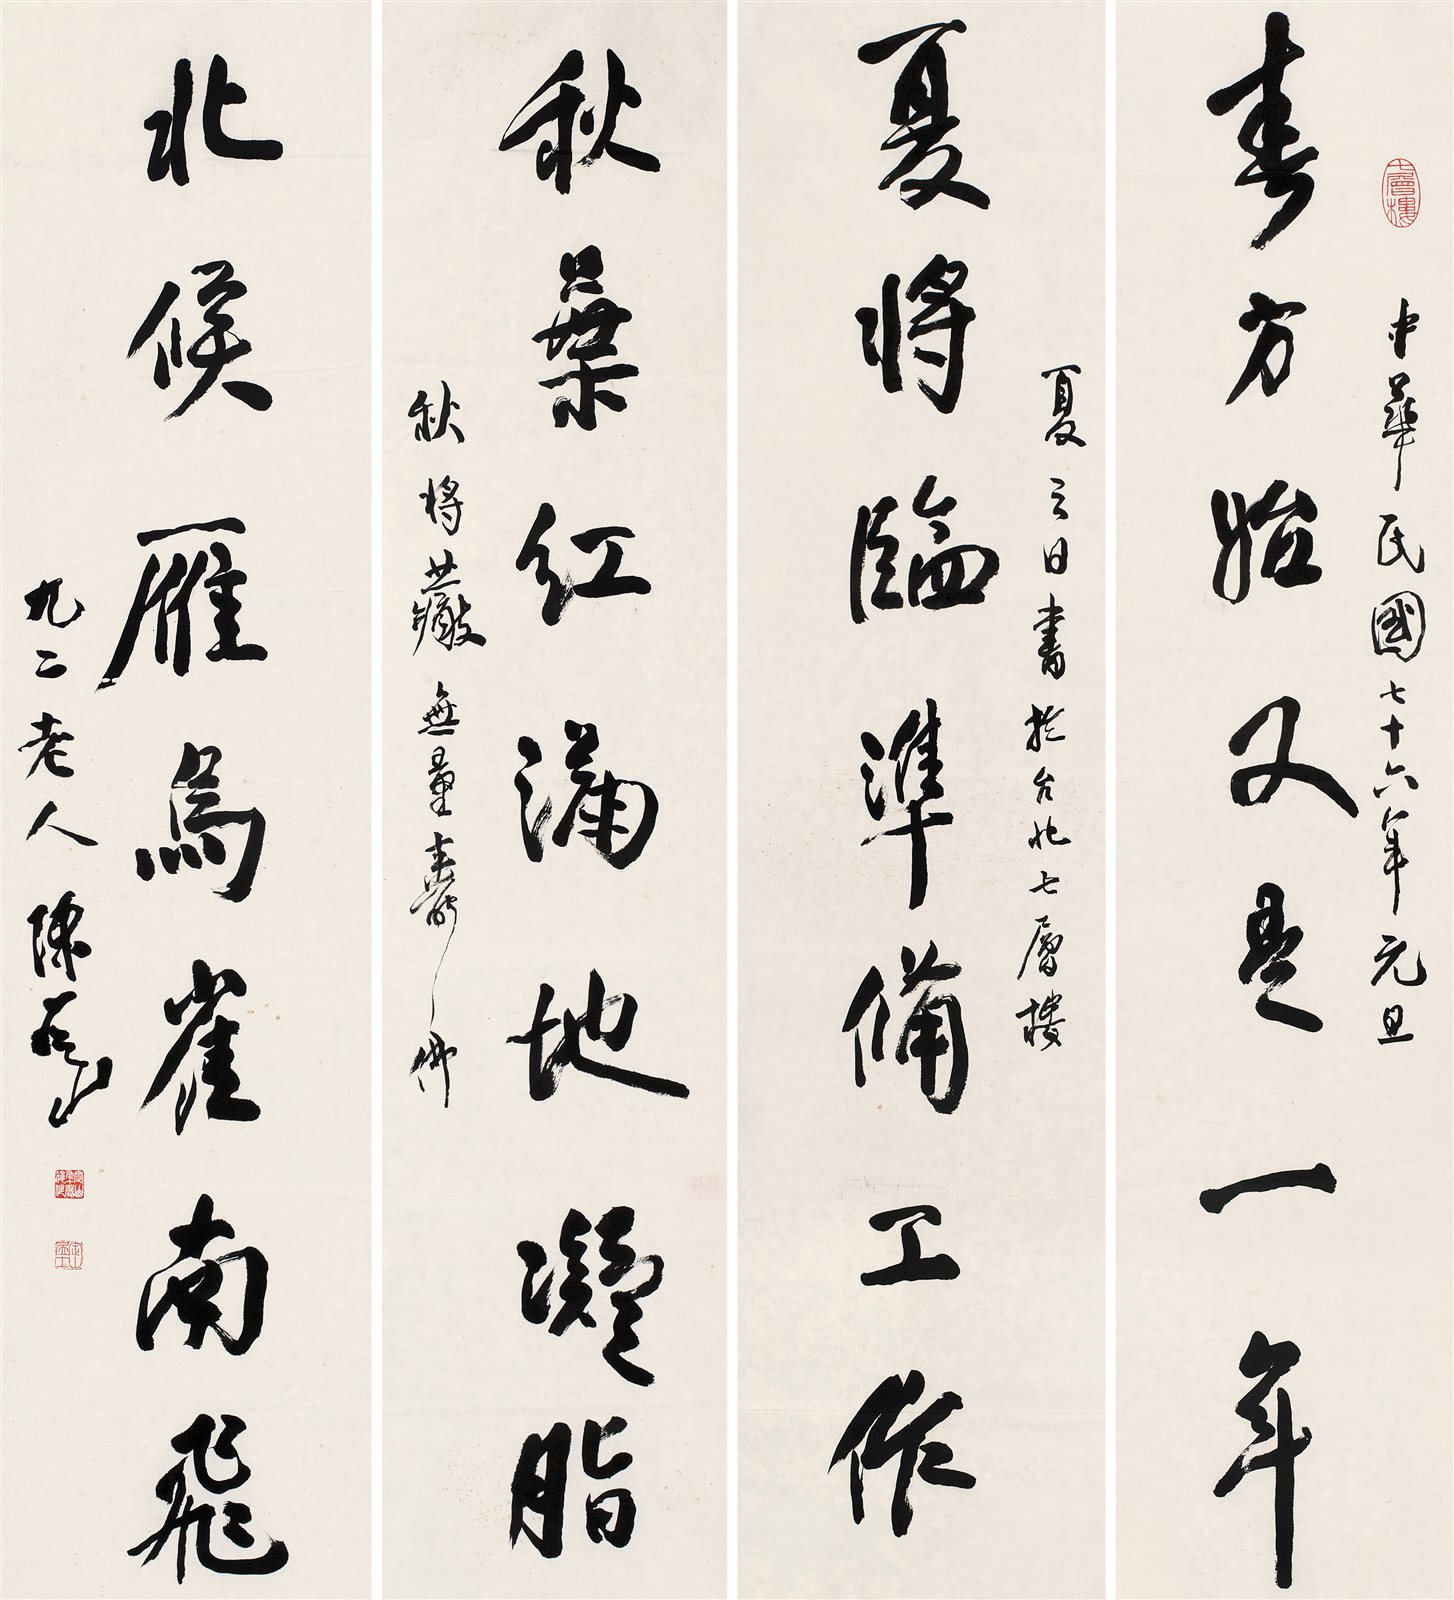 七層樓
中華民國七十六年元旦
春方始又是一年
夏之日書於台北七層樓
夏將臨準備工作
秋葉紅滿地凝脂
秋將無量壽佛
北候雁鳥雀南飛
九二老人陳定山